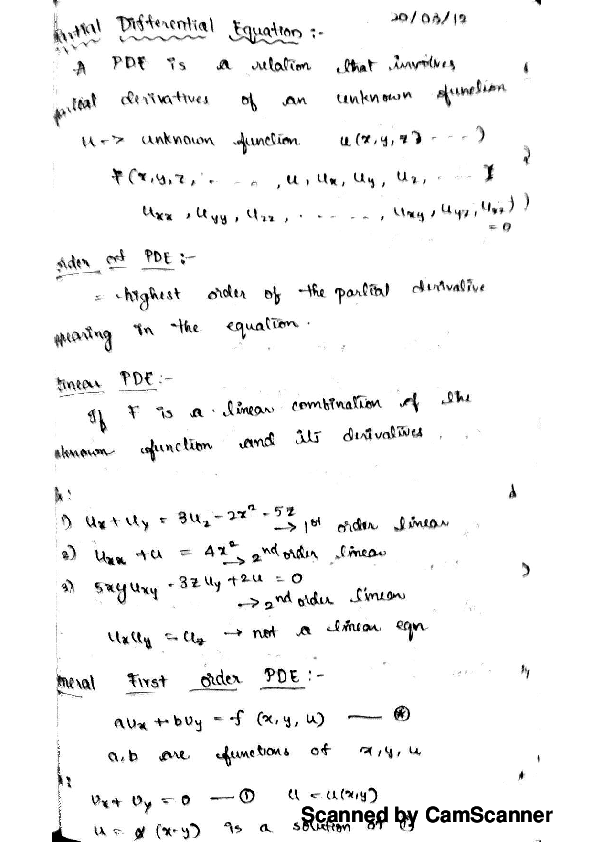 Partial Differential Equation :-
20/03/19
A PDE is a relation that involves
partial derivatives of an unknown function
u -> unknown function u(x, y, z, - - - -)
F(x, y, z, . - - . . , u, ux, uy, uz, . - - -
uxx, uyy, uzz, . - - . . . , uxy, uyz, uxz)) = 0
order of PDE :-
= highest order of the partial derivative
appearing in the equation.
Linear PDE :-
If F is a linear combination of the
unknown function and its derivatives.
1) ux + uy = 3uz - 2x² - 5z
-> 1st order linear
2) uxx + u = 4x²
-> 2nd order linear
3) 5xy uxy - 3z uy + 2u = 0
-> 2nd order linear
ux uy = uz -> not a linear eqn
General First order PDE :-
aux + buy = f (x, y, u) — ⊛
a, b are functions of x, y, u
ux + uy = 0 — ① u = u(x, y)
u = φ (x-y) is a solution of ①
Scanned by CamScanner